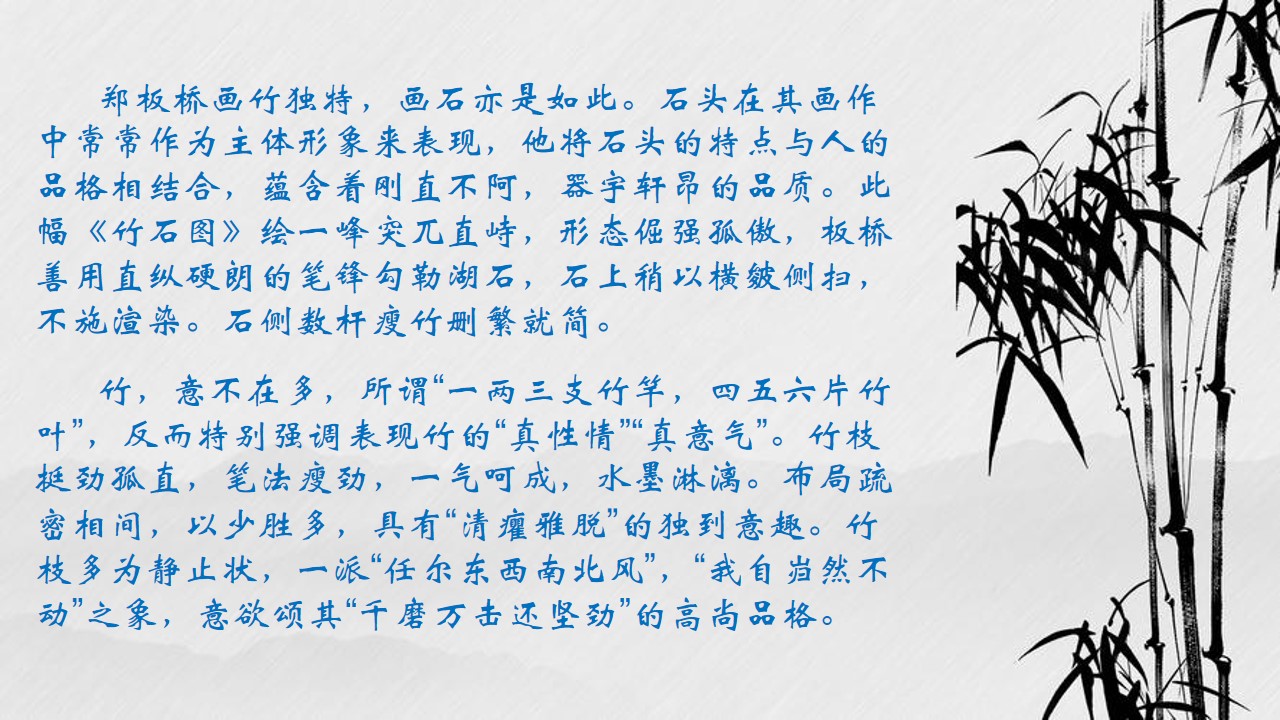 郑板桥画竹独特，画石亦是如此。石头在其画作
中常常作为主体形象来表现，他将石头的特点与人的
品格相结合，蕴含着刚直不阿，器宇轩昂的品质。此
幅《竹石图》绘一峰突兀直峙，形态倔强孤傲，板桥
善用直纵硬朗的笔锋勾勒湖石，石上稍以横皴侧扫，
不施渲染。石侧数杆瘦竹删繁就简。
竹，意不在多，所谓“一两三支竹竿，四五六片竹
叶”，反而特别强调表现竹的“真性情”“真意气”。竹枝
挺劲孤直，笔法瘦劲，一气呵成，水墨淋漓。布局疏
密相间，以少胜多，具有“清癯雅脱”的独到意趣。竹
枝多为静止状，一派“任尔东西南北风”，“我自岿然不
动”之象，意欲颂其“千磨万击还坚劲”的高尚品格。